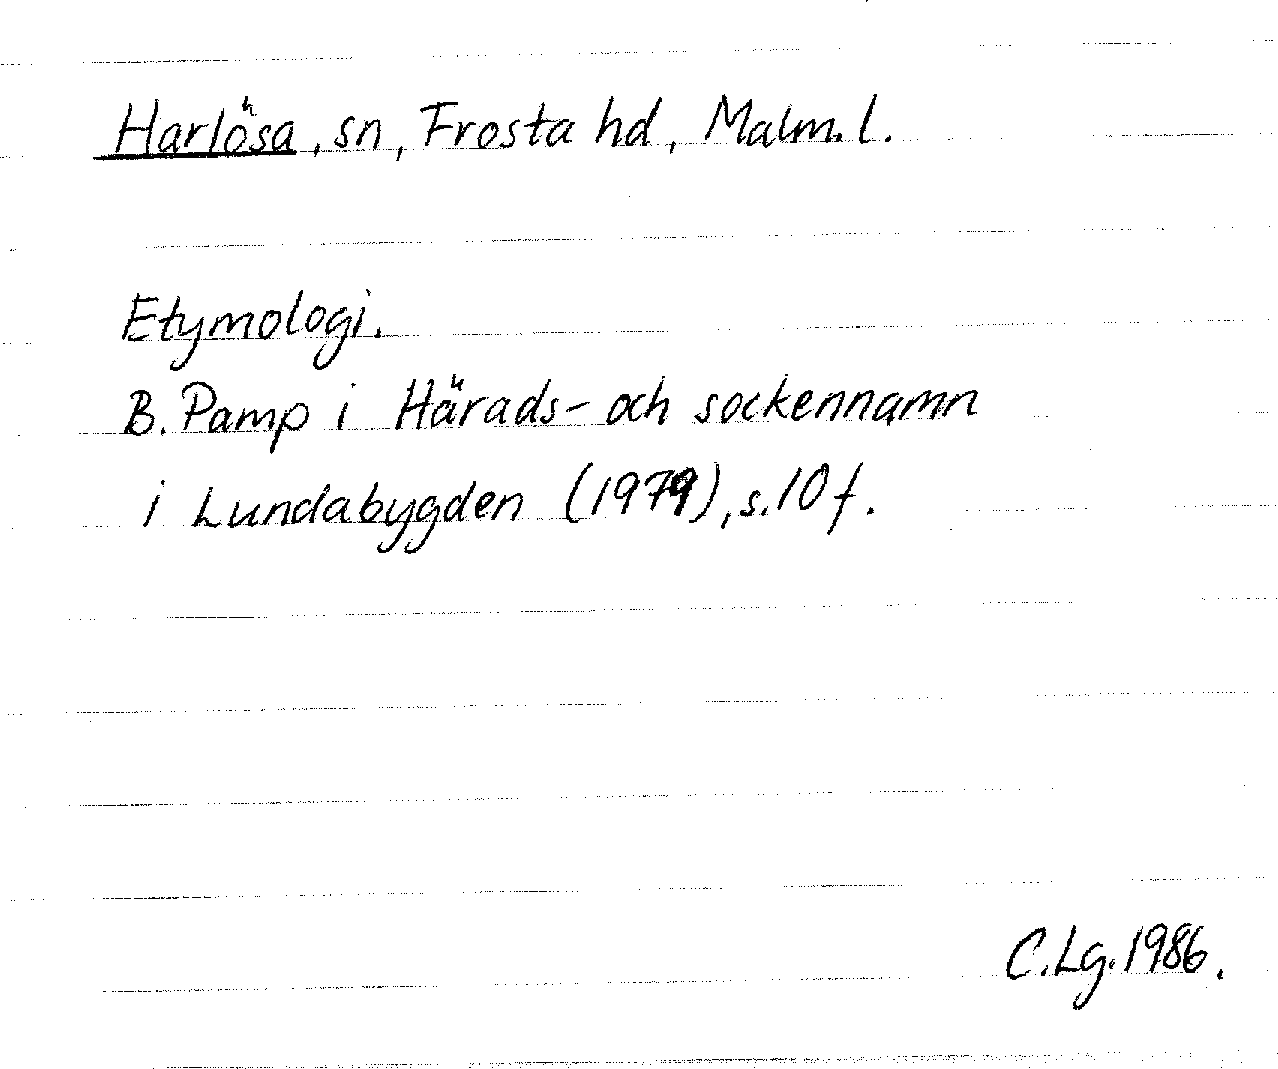 Harlösa, sn, Frosta hd, Malm. l.
Etymologi.
B. Pamp i Härads- och sockennamn
i Lundabygden (1979), s. 10 f.
C. Lg. 1986.